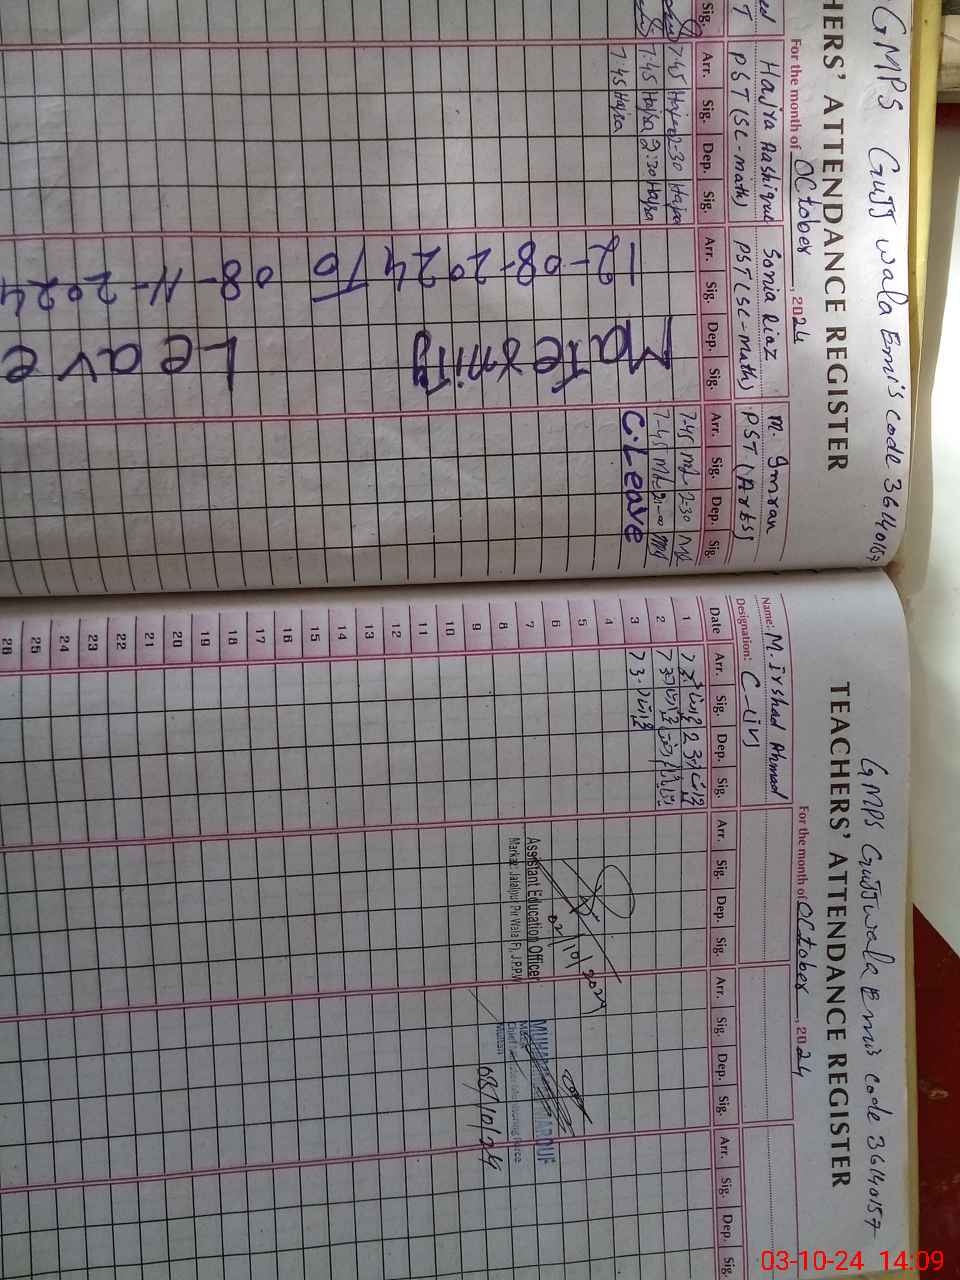 GMPS Gujj wala Emis code 36140157
HERS' ATTENDANCE REGISTER
For the month of October, 2024
Hajra Aashique Sonia Riaz M. Imran
PST (Sc-math) PST (Sc-math) PST (Arts)
Sig. Arr. Sig. Dep. Sig. Arr. Sig. Dep. Sig. Arr. Sig. Dep. Sig.
7:45 Hajra 2-30 Hajra 7-45 2-30
7:45 Hajra 2:30 Hajra 7-45
7:45 Hajra C.Leave
12-08-2024 To 08-11-2024
Maternity Leave
GMPS Gujjwala Emis code 36140157
TEACHERS' ATTENDANCE REGISTER
For the month of October, 2024
Name: M. Irshad Ahmad
Designation: C-IV
Date Arr. Sig. Dep. Sig. Arr. Sig. Dep. Sig. Arr. Sig. Dep. Sig. Arr. Sig. Dep. Sig.
1
2
3
4
5
6
7
8
9
10
11
12
13
14
15
16
17
18
19
20
21
22
23
24
25
26
02/10/2024
Assistant Education Officer
Markaz Jalalpur Pir Wala (F), J.P.P.W
03/10/24
03-10-24 14:09